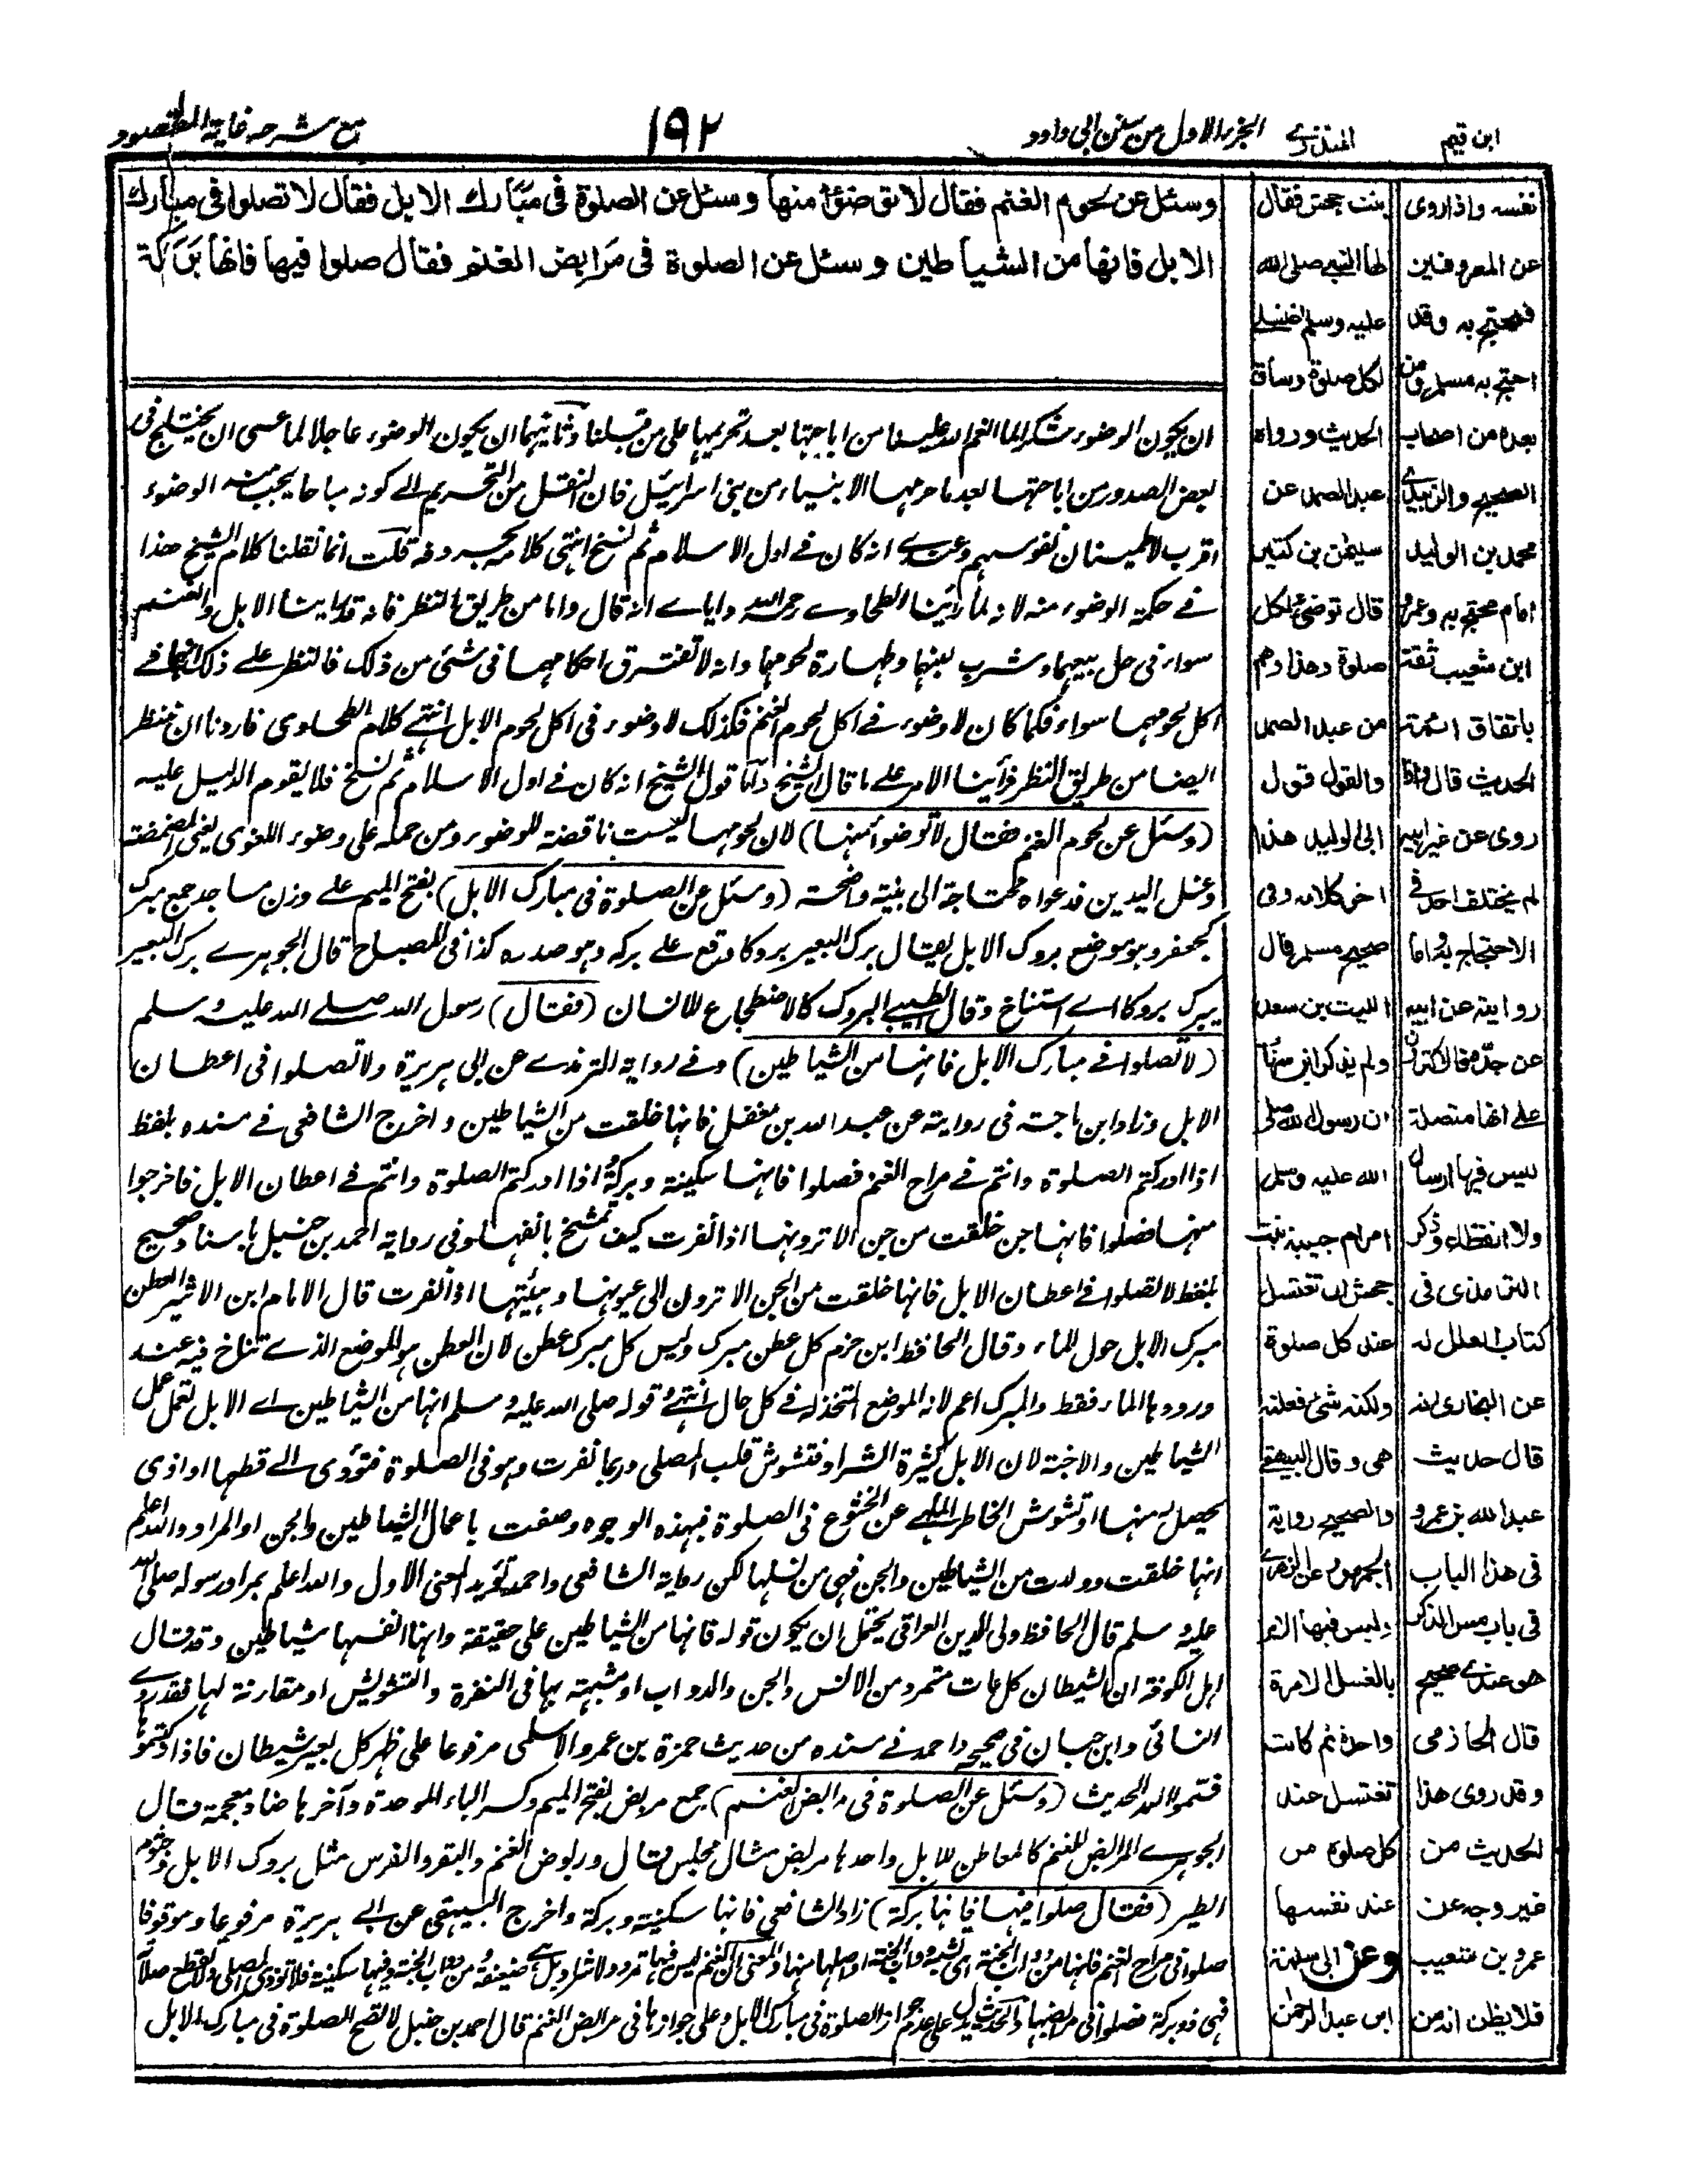 ابن قيم
المنذرى
الجزء الاول من سنن ابى داود
١٩٢
مع شرحه غاية المقصود
وسئل عن لحوم الغنم فقال لا توضؤا منها وسئل عن الصلوة فى مبارك الابل فقال لا تصلوا فى مبارك
الابل فانها من الشياطين وسئل عن الصلوة فى مرابض الغنم فقال صلوا فيها فانها بركة
ان يكون الوضوء شكرا لما انعم الله علينا من اباحتها بعد تحريمها على من قبلنا وثانيهما ان يكون الوضوء عاجلا لما عسى ان يختلج فى
بعض الصدور من اباحتها بعد ما حرمها الانبياء من بنى اسرائيل فان النقل من التحريم الى كونه مباحا يجب منه الوضوء
اقرب لاطمينان نفوسهم وعندى انه كان فى اول الاسلام ثم نسخ انتهى كلامه بحروفه قلت انما نقلنا كلام الشيخ هذا
فى حكمة الوضوء منه لانه لما رأينا الطحاوى رحمه الله واياى انه قال واما من طريق النظر فانه قد راينا الابل والغنم
سواء فى حل بيعهما وشرب لبنهما وطهارة لحومهما وانه لا تفترق احكامهما فى شئ من ذلك فالنظر على ذلك انهما فى
اكل لحومهما سواء فكما كان لا وضوء فى اكل لحوم الغنم فكذلك لا وضوء فى اكل لحوم الابل انتهى كلام الطحاوى فاردنا ان ننظر
ايضا من طريق النظر فرأينا الامر على ما قال الشيخ واما قول الشيخ انه كان فى اول الاسلام ثم نسخ فلا يقوم الدليل عليه
(وسئل عن لحوم الغنم فقال لا توضوا منها) لان لحومها ليست ناقضة للوضوء ومن حمله على وضوء اللغوى يعنى المضمضة
وغسل اليدين فدعواه محتاجة الى بينة واضحة (وسئل عن الصلوة فى مبارك الابل) بفتح الميم على وزن مساجد جمع مبرك
كجعفر وهو موضع بروك الابل يقال برك البعير بروكا وقع على بركه وهو صدره كذا فى المصباح قال الجوهرى برك البعير
يبرك بروكا اى استناخ وقال الطيبى البروك كالاضطجاع للانسان (فقال) رسول الله صلى الله عليه وسلم
(لا تصلوا فى مبارك الابل فانها من الشياطين) وفى رواية الترمذى عن ابى هريرة ولا تصلوا فى اعطان
الابل وزاد ابن ماجة فى رواية عن عبد الله بن مغفل فانها خلقت من الشياطين واخرج الشافعى فى مسنده بلفظ
اذا ادركتم الصلوة وانتم فى مراح الغنم فصلوا فانها سكينة وبركة واذا ادركتم الصلوة وانتم فى اعطان الابل فاخرجوا
منها فصلوا فانها جن خلقت من جن الا ترونها اذا نفرت كيف تشمخ بانفها وفى رواية احمد بن حنبل باسناد صحيح
بلفظ لا تصلوا فى اعطان الابل فانها خلقت من الجن الا ترون الى عيونها وهيئتها اذا نفرت قال الامام ابن الاثير العطن
مبرك الابل حول الماء وقال الحافظ ابن حزم كل عطن مبرك وليس كل مبرك عطن لان العطن هو الموضع الذى تناخ فيه عند
ورودها الماء فقط والمبرك اعم لانه الموضع المتخذ له فى كل حال انتهى وقوله صلى الله عليه وسلم انها من الشياطين اى الابل تعمل عمل
الشياطين والاجنة لان الابل كثيرة الشراد فتشوش قلب المصلى وربما نفرت وهو فى الصلوة فتؤدى الى قطعها او اذى
يحصل له منها او تشوش الخاطر الملهى عن الخشوع فى الصلوة فبهذه الوجوه وصفت باعمال الشياطين والجن او المراد والله اعلم
انها خلقت وولدت من الشياطين والجن فهى من نسلها لكن رواية الشافعى واحمد تؤيد المعنى الاول والله اعلم بمراد رسوله صلى الله
عليه وسلم قال الحافظ ولى الدين العراقى يحتمل ان يكون قوله فانها من الشياطين على حقيقة وانها انفسها شياطين وقد قال
اهل الكوفة ان الشيطان كل عات متمرد من الانس والجن والدواب او مشبهة بها فى النفرة والتشويش او مقارنة لها فقد روى
النسائى وابن حبان فى صحيحه واحمد فى مسنده من حديث حمزة بن عمرو الاسلمى مرفوعا على ظهر كل بعير شيطان فاذا ركبتموها
فسموا الله الحديث (وسئل عن الصلوة فى مرابض الغنم) جمع مربض بفتح الميم وكسر الباء الموحدة وآخرها ضاد معجمة قال
الجوهرى المرابض للغنم كالمعاطن للابل واحدها مربض مثال مجلس قال وربوض الغنم والبقر والفرس مثل بروك الابل وجثوم
الطير (فقال صلوا فيها فانها بركة) زاد الشافعى فانها سكينة وبركة واخرج البيهقى عن ابى هريرة مرفوعا وموقوفا
صلوا فى مراح الغنم فانها من دواب الجنة اى شبيه دواب الجنة او اصلها منها والمعنى ان الغنم ليس فيها تمرد ولا شراد بل هى ضعيفة ومن دواب الجنة وفيها سكينة فلا تؤذى المصلى ولا تقطع صلاته
فهى ذو بركة فصلوا فى مرابضها والحديث يدل على عدم جواز الصلوة فى مبارك الابل وعلى جوازها فى مرابض الغنم قال احمد بن حنبل لا تصح الصلوة فى مبارك الابل
بنت جحش فقال
لها النبى صلى الله
عليه وسلم اغتسلى
لكل صلوة وساق
الحديث ورواه
عبد الصمد عن
سليمن بن كثير
قال توضئ لكل
صلوة وهذا وهم
من عبد الصمد
والقول قول
ابى الوليد هذا
اخر كلامه وفى
صحيح مسلم قال
الليث بن سعد
ولم يذكر ابن شهاب
ان رسول الله صلى
الله عليه وسلم
امر ام حبيبة بنت
جحش ان تغتسل
عند كل صلوة
ولكنه شئ فعلته
هى وقال البيهقى
والصحيح رواية
الجمهور عن الزهرى
وليس فيها الامر
بالغسل الا مرة
واحدة ثم كانت
تغتسل عند
كل صلوة من
عند نفسها
وعن ابى سلمة
ابن عبد الرحمن
نفسه واذا روى
عن المعروفين
فيحتج به وقد
احتج به مسلم ومن
بعده من اصحاب
الصحيح والزبيدى
محمد بن الوليد
امام محتج به وعمرو
ابن شعيب ثقة
باتفاق ائمة
الحديث قال واذا
روى عن غير ابيه
لم يختلف احد فى
الاحتجاج به واما
روايته عن ابيه
عن جده فالاكثرون
على انها متصلة
ليس فيها ارسال
ولا انقطاع وذكر
الترمذى فى
كتاب العلل له
عن البخارى انه
قال حديث
عبد الله بن عمرو
فى هذا الباب
فى باب مس الذكر
هو عندى صحيح
قال الحازمى
وقد روى هذا
الحديث من
غير وجه عن
عمرو بن شعيب
فلا يظن انه من